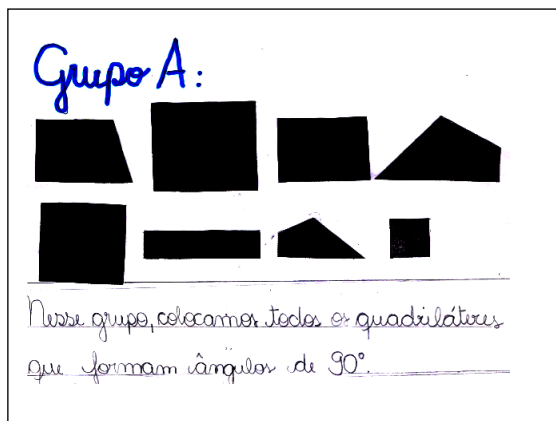 Grupo A:
Nesse grupo, colocamos todos os quadriláteros
que formam ângulos de 90°.